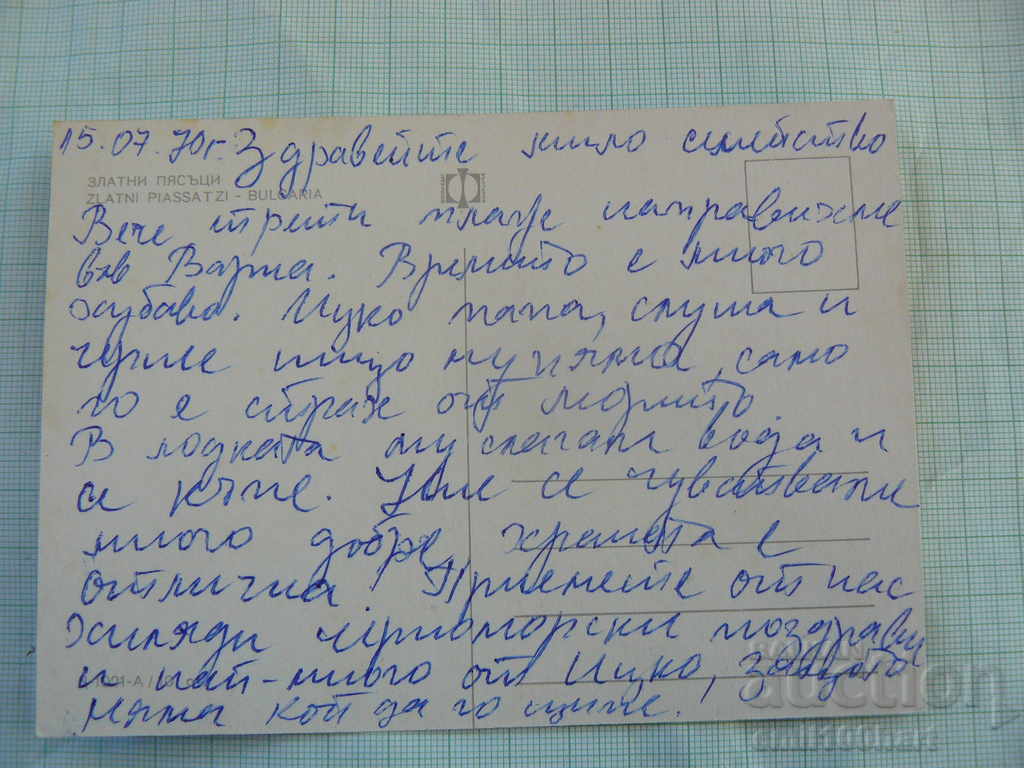 15.07.70г. Здравейте мило семейство
ЗЛАТНИ ПЯСЪЦИ
ZLATNI PIASSATZI - BULGARIA
Вече трети плаж направихме
във Варна. Времето е много
хубаво. Ицко папа, слуша и
нищо му няма, само
го е страх от морето.
В лодката му слагам вода и
се къпе. Ние се чувстваме
много добре, храната е
отлична. Приемете от нас
хиляди черноморски поздрави
и най-много от Ицко,
няма кой да го щипе.
auction
emil100hart